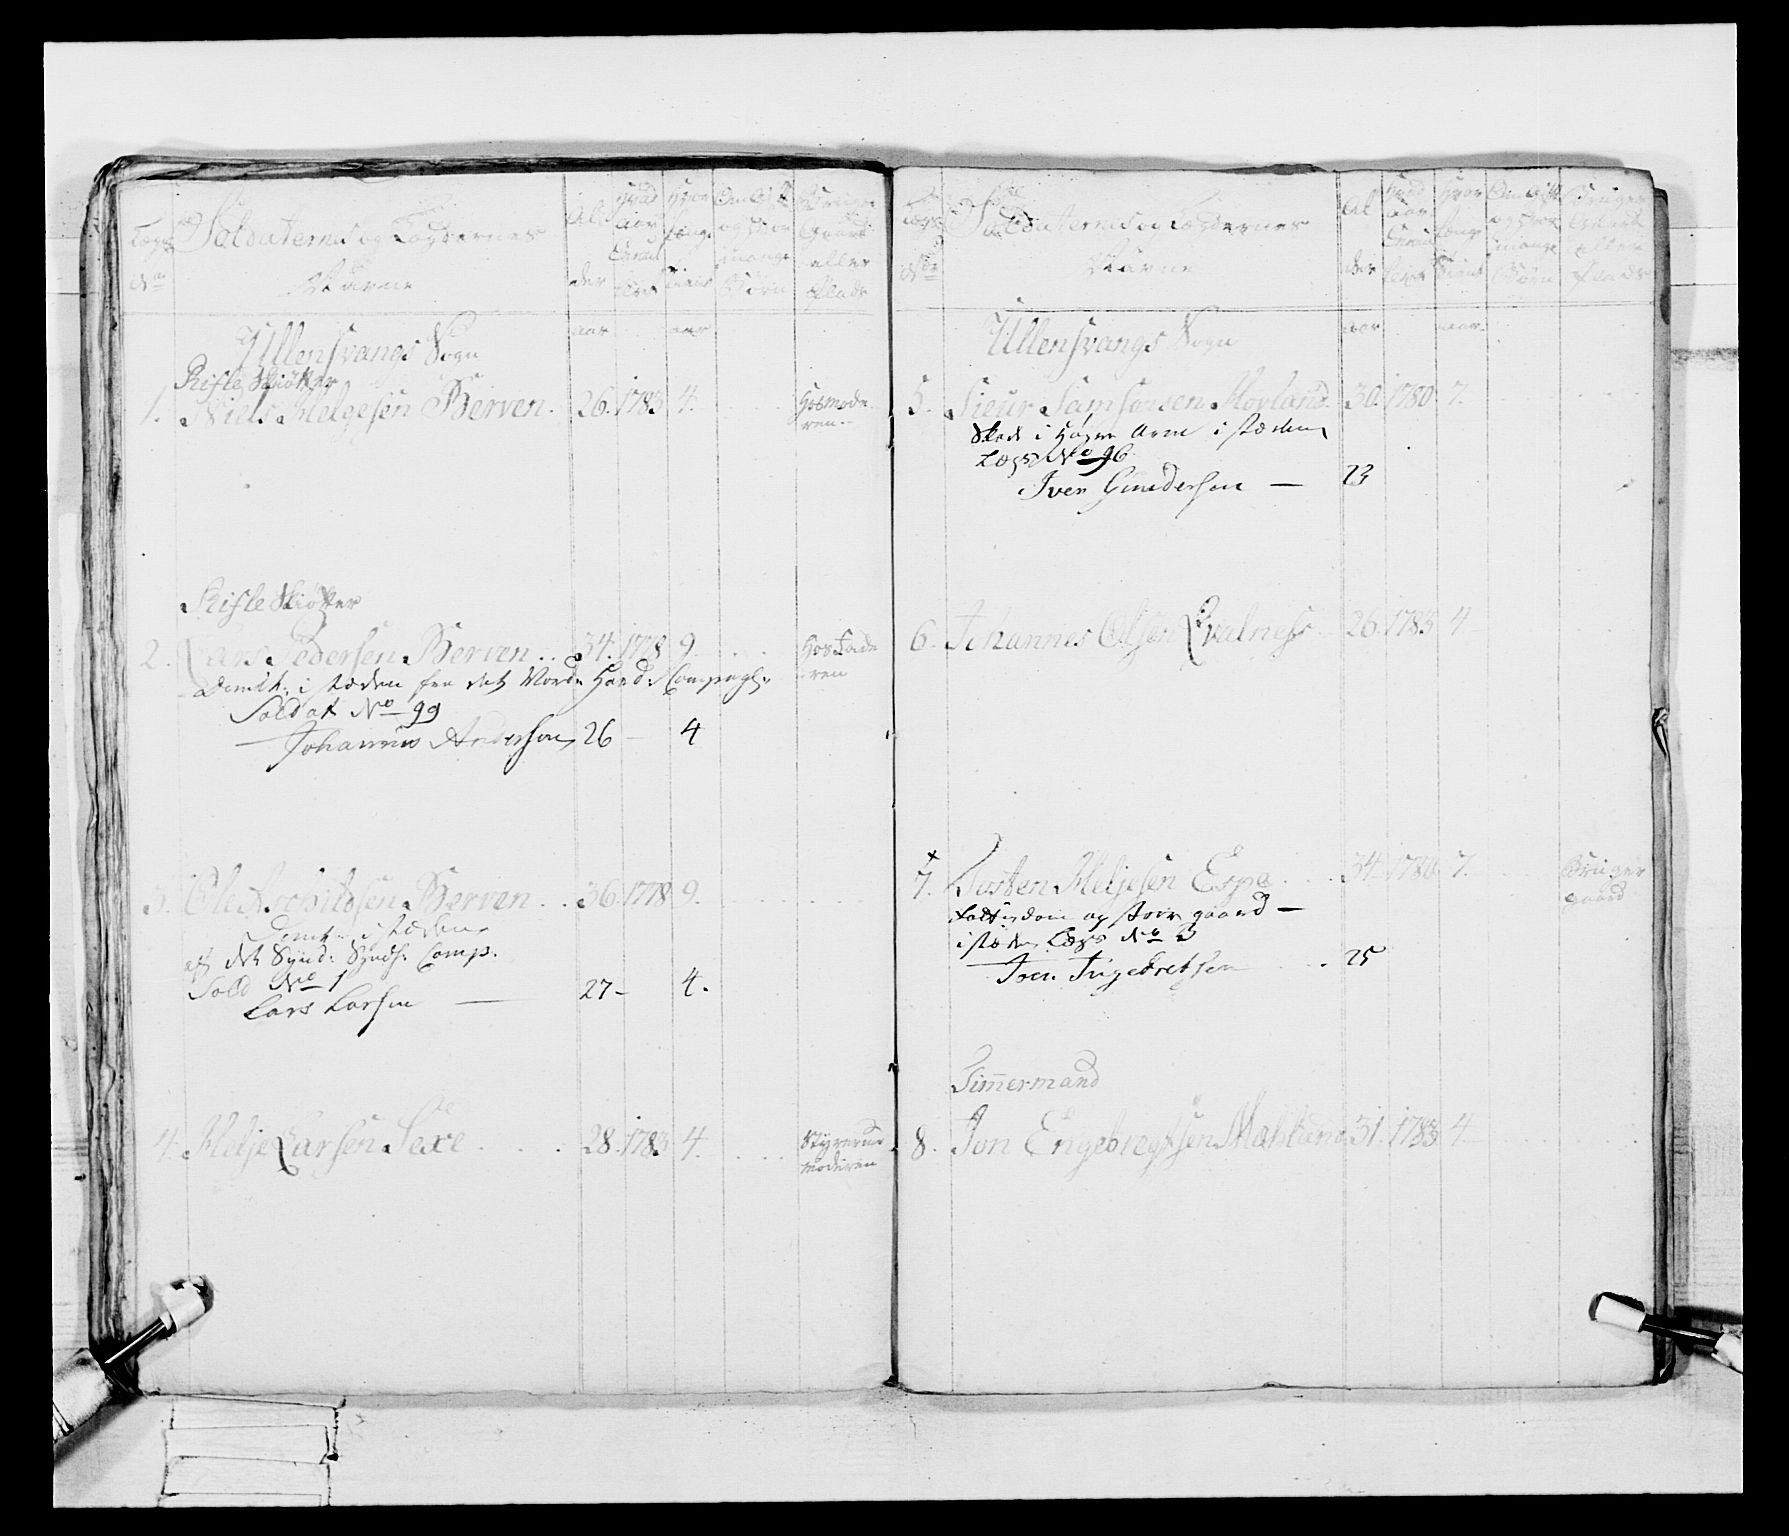 Lægs No
Soldaternes og Lægdernes Navne
Al der aar
Hvad Aar
Hvor længe tient aar
Om Gift og hvor mange Børn
Bruger Gaard eller Plads
Ullensvangs Sogn
Rifle Skiötter
1. Niels Helgesen Berven. 26. 1783 4. Hos Mode ren.
Rifle Skiötter
2. Lars Pedersen Berven .. 34. 1778 9. Hos Fade ren
Dimit: i stæden fra det Nord: Hard: Compagl.
Soldat No 99
Johannes Andersen 26 - 4
3. Ole Berven .. 36. 1778 9.
Dimt. i stæden
af det Synd: Comp.
Sold No 1
Lars Larsen — 27 - 4.
4. Helje Larsen Sexe . . . 28. 1783 4. Styrer moderen
Lægs No
Soldaternes og Lægdernes Navne
Al der aar
Hvad Aar
Hvor længe tient aar
Om gift og hvor mange Børn
Bruger Gaard eller Plads
Ullensvangs Sogn
5. Sieur Samsonsen Hovland. 30. 1780 7.
Skade i Høyre Arm i stæden
Lægs No 96
Iver Gundersen — 23
6. Johannes Olsen Qvalness 26. 1783 4
x
7. Torsten Heljesen Espe . . . 34. 1780 7. Bruger gaard
og stoer gaard —
i stæden Lægs No 3
Iver Ingebretsen . 25
Timmermand
8. Jon Engebregtsen 31. 1783 4